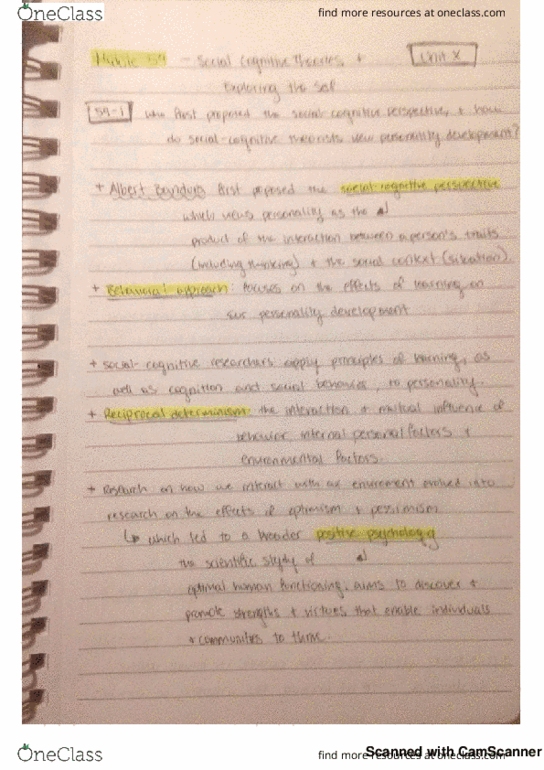 OneClass
find more resources at oneclass.com
Module 59 - Social Cognitive Theories +
Unit X
Exploring the Self
59-1 who first proposed the social-cognitive perspective, + how
do social-cognitive theorists view personality development?
+ Albert Bandura first proposed the social-cognitive perspective
which views personality as the
product of the interaction between a person's traits
(including thinking) + the social context (situation).
+ Behavioral approach: focuses on the effects of learning on
our personality development
+ social-cognitive researchers apply principles of learning, as
well as cognition and social behavior, to personality.
+ Reciprocal determinism: the interaction + mutual influence of
behavior, internal personal factors +
environmental factors.
+ Research on how we interact with our environment evolved into
research on the effects of optimism + pessimism
↳ which led to a broader positive psychology
the scientific study of
optimal human functioning; aims to discover +
promote strengths + virtues that enable individuals
+ communities to thrive.
OneClass
find more resources at oneclass.com
Scanned with CamScanner